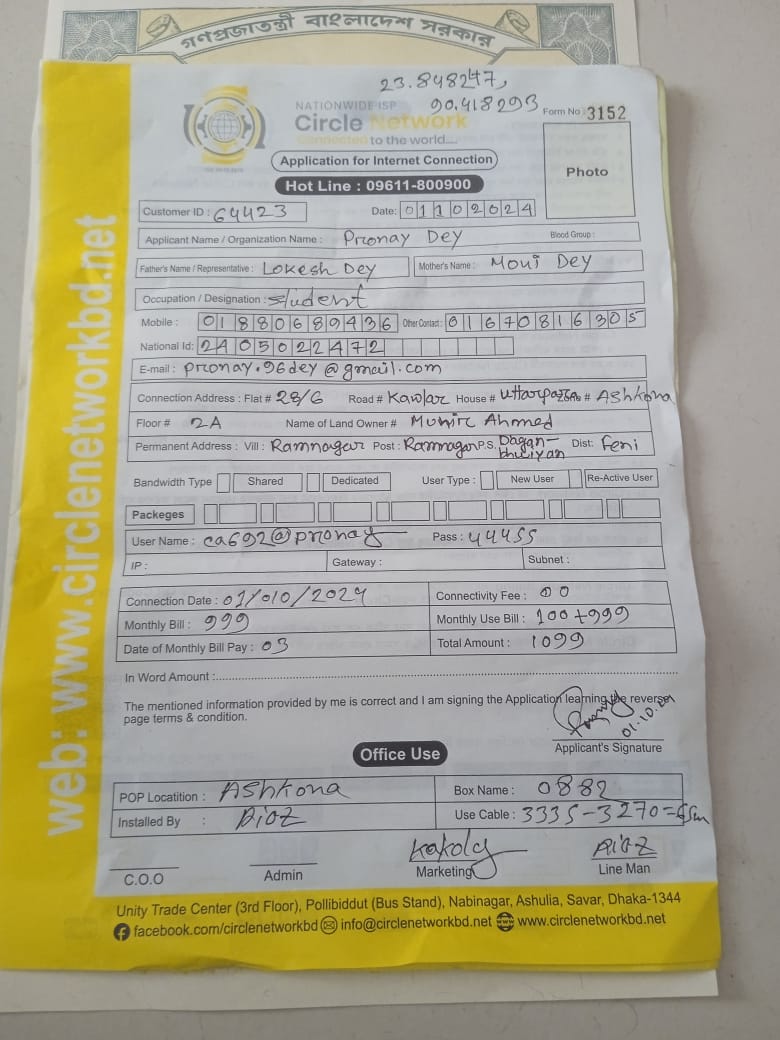 গণপ্রজাতন্ত্রী বাংলাদেশ সরকার
23.848247,
90.418293
NATIONWIDE ISP
Circle Network
Connected to the world....
Form No : 3152
Application for Internet Connection
Photo
Hot Line : 09611-800900
Customer ID : 64423 Date: 01102024
Applicant Name / Organization Name : Pronay Dey Blood Group :
Father's Name / Representative : Lokesh Dey Mother's Name : Moni Dey
Occupation / Designation : Student
Mobile : 01880689436 Other Contact : 01670816305
National Id: 2405022472
E-mail : pronay.96dey@gmail.com
Connection Address : Flat # 28/6 Road # Kawlar House # Uttarpara # Ashkona
Floor # 2A Name of Land Owner # Munir Ahmed
Permanent Address : Vill : Ramnagar Post : Ramnagar P.S. Dagan-bhuiyan Dist: Feni
Bandwidth Type Shared Dedicated User Type : New User Re-Active User
Packeges
User Name : ca692@pronay Pass : 44455
IP : Gateway : Subnet :
Connection Date : 01/010/2024 Connectivity Fee : 00
Monthly Bill : 999 Monthly Use Bill : 100+999
Date of Monthly Bill Pay : 03 Total Amount : 1099
In Word Amount :
The mentioned information provided by me is correct and I am signing the Application learning the reverse
page terms & condition.
01.10.
Applicant's Signature
Office Use
POP Locatition : Ashkona Box Name : 0882
Installed By : Riaz Use Cable : 3335-3270=65m
Kakoly Riaz
C.O.O Admin Marketing Line Man
Unity Trade Center (3rd Floor), Pollibiddut (Bus Stand), Nabinagar, Ashulia, Savar, Dhaka-1344
facebook.com/circlenetworkbd info@circlenetworkbd.net www.circlenetworkbd.net
web: www.circlenetworkbd.net